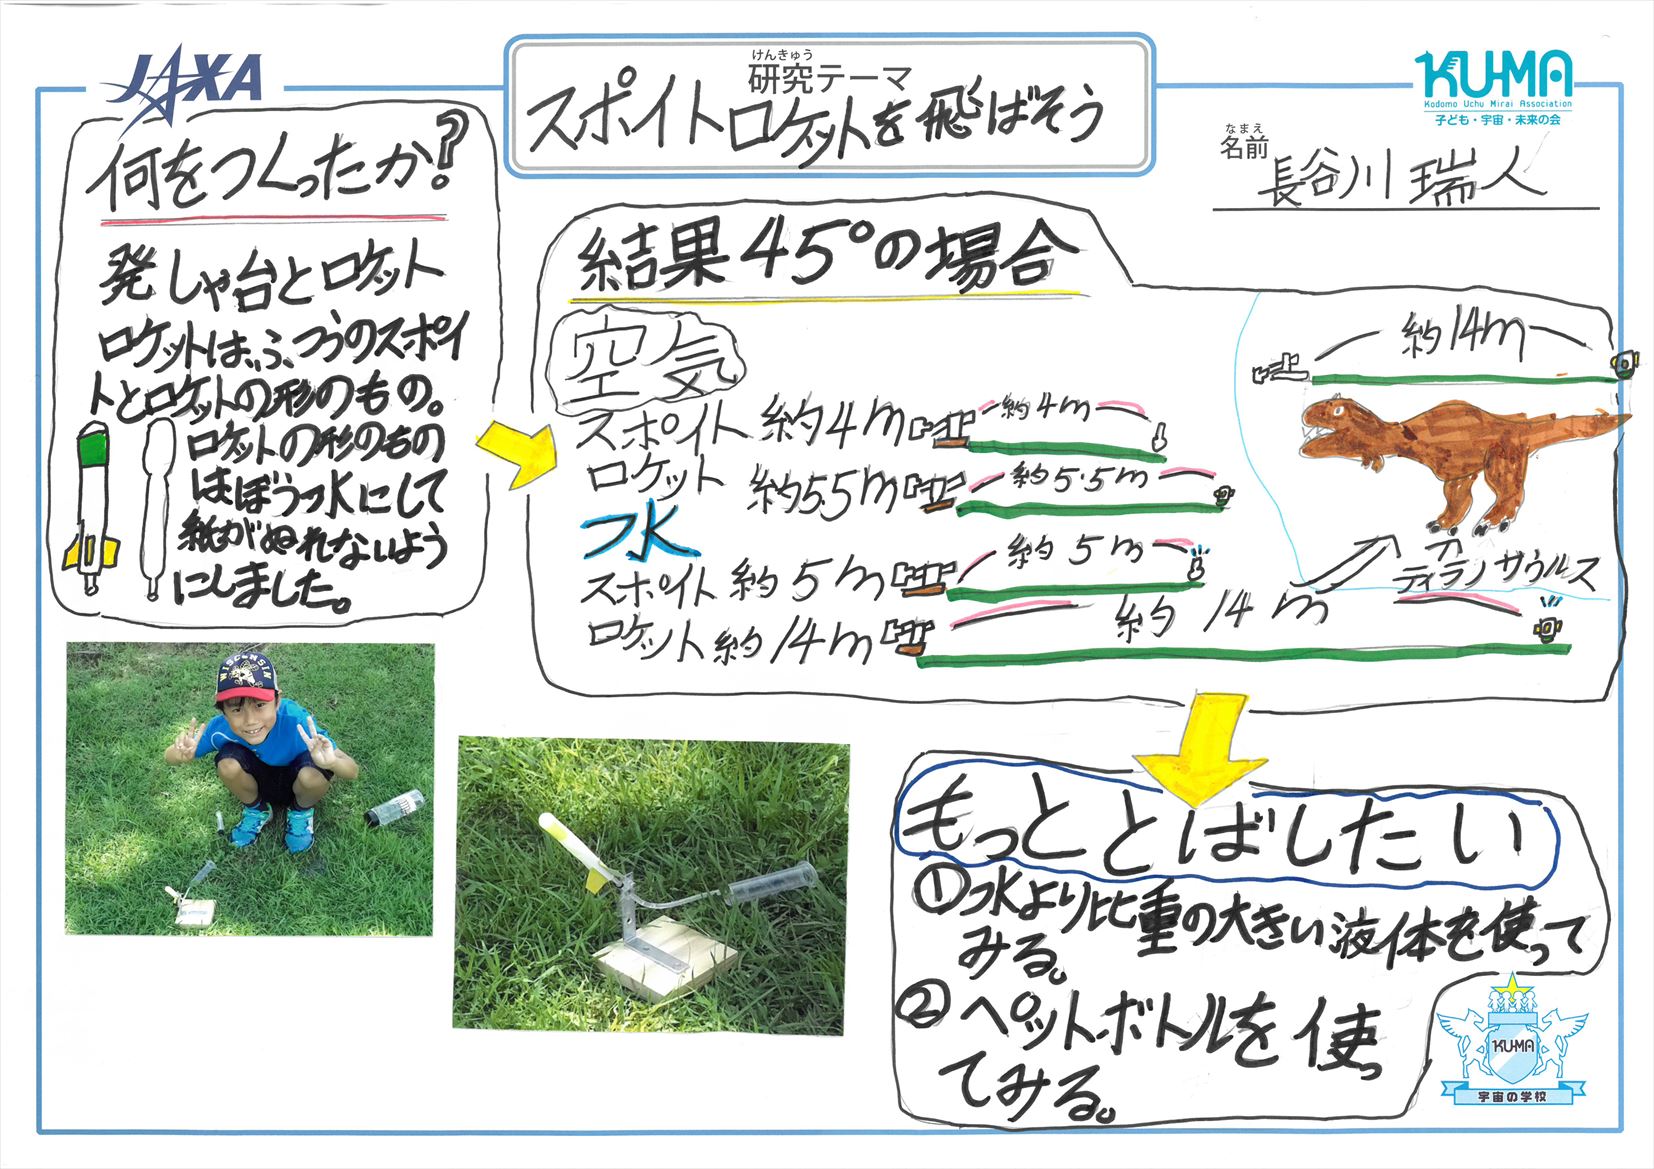 JAXA
けんきゅう
研究テーマ
スポイトロケットを飛ばそう
KU-MA
Kodomo Uchu Mirai Association
子ども・宇宙・未来の会
なまえ
名前
長谷川 瑞人
何をつくったか?
発しゃ台とロケット
ロケットは、ふつうのスポイ
トとロケットの形のもの。
ロケットの形のもの
はぼうつ水にして
紙がぬれないよう
にしました。
結果45°の場合
空気
スポイト 約4m
約4m
ロケット 約5.5m
約5.5m
水
スポイト 約5m
約5m
ロケット 約14m
約14m
約14m
ティラノサウルス
もっととばしたい
①水より比重の大きい液体を使って
みる。
②ペットボトルを使っ
てみる。
WISCONSIN
KU-MA
宇宙の学校